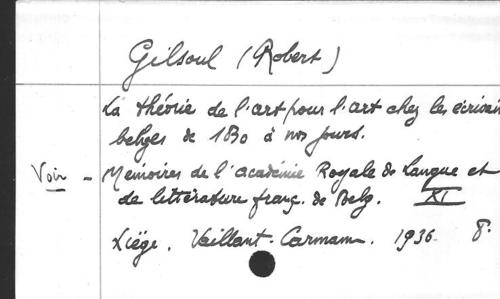 Gilsoul (Robert)
La théorie de l'art pour l'art chez les écrivains
belges de 1830 à nos jours.
Voir - Memoires de l'académie Royale de Langue et
de littérature franç. de Belg. XI
Liège. Vaillant-Carmann. 1936. 8°.